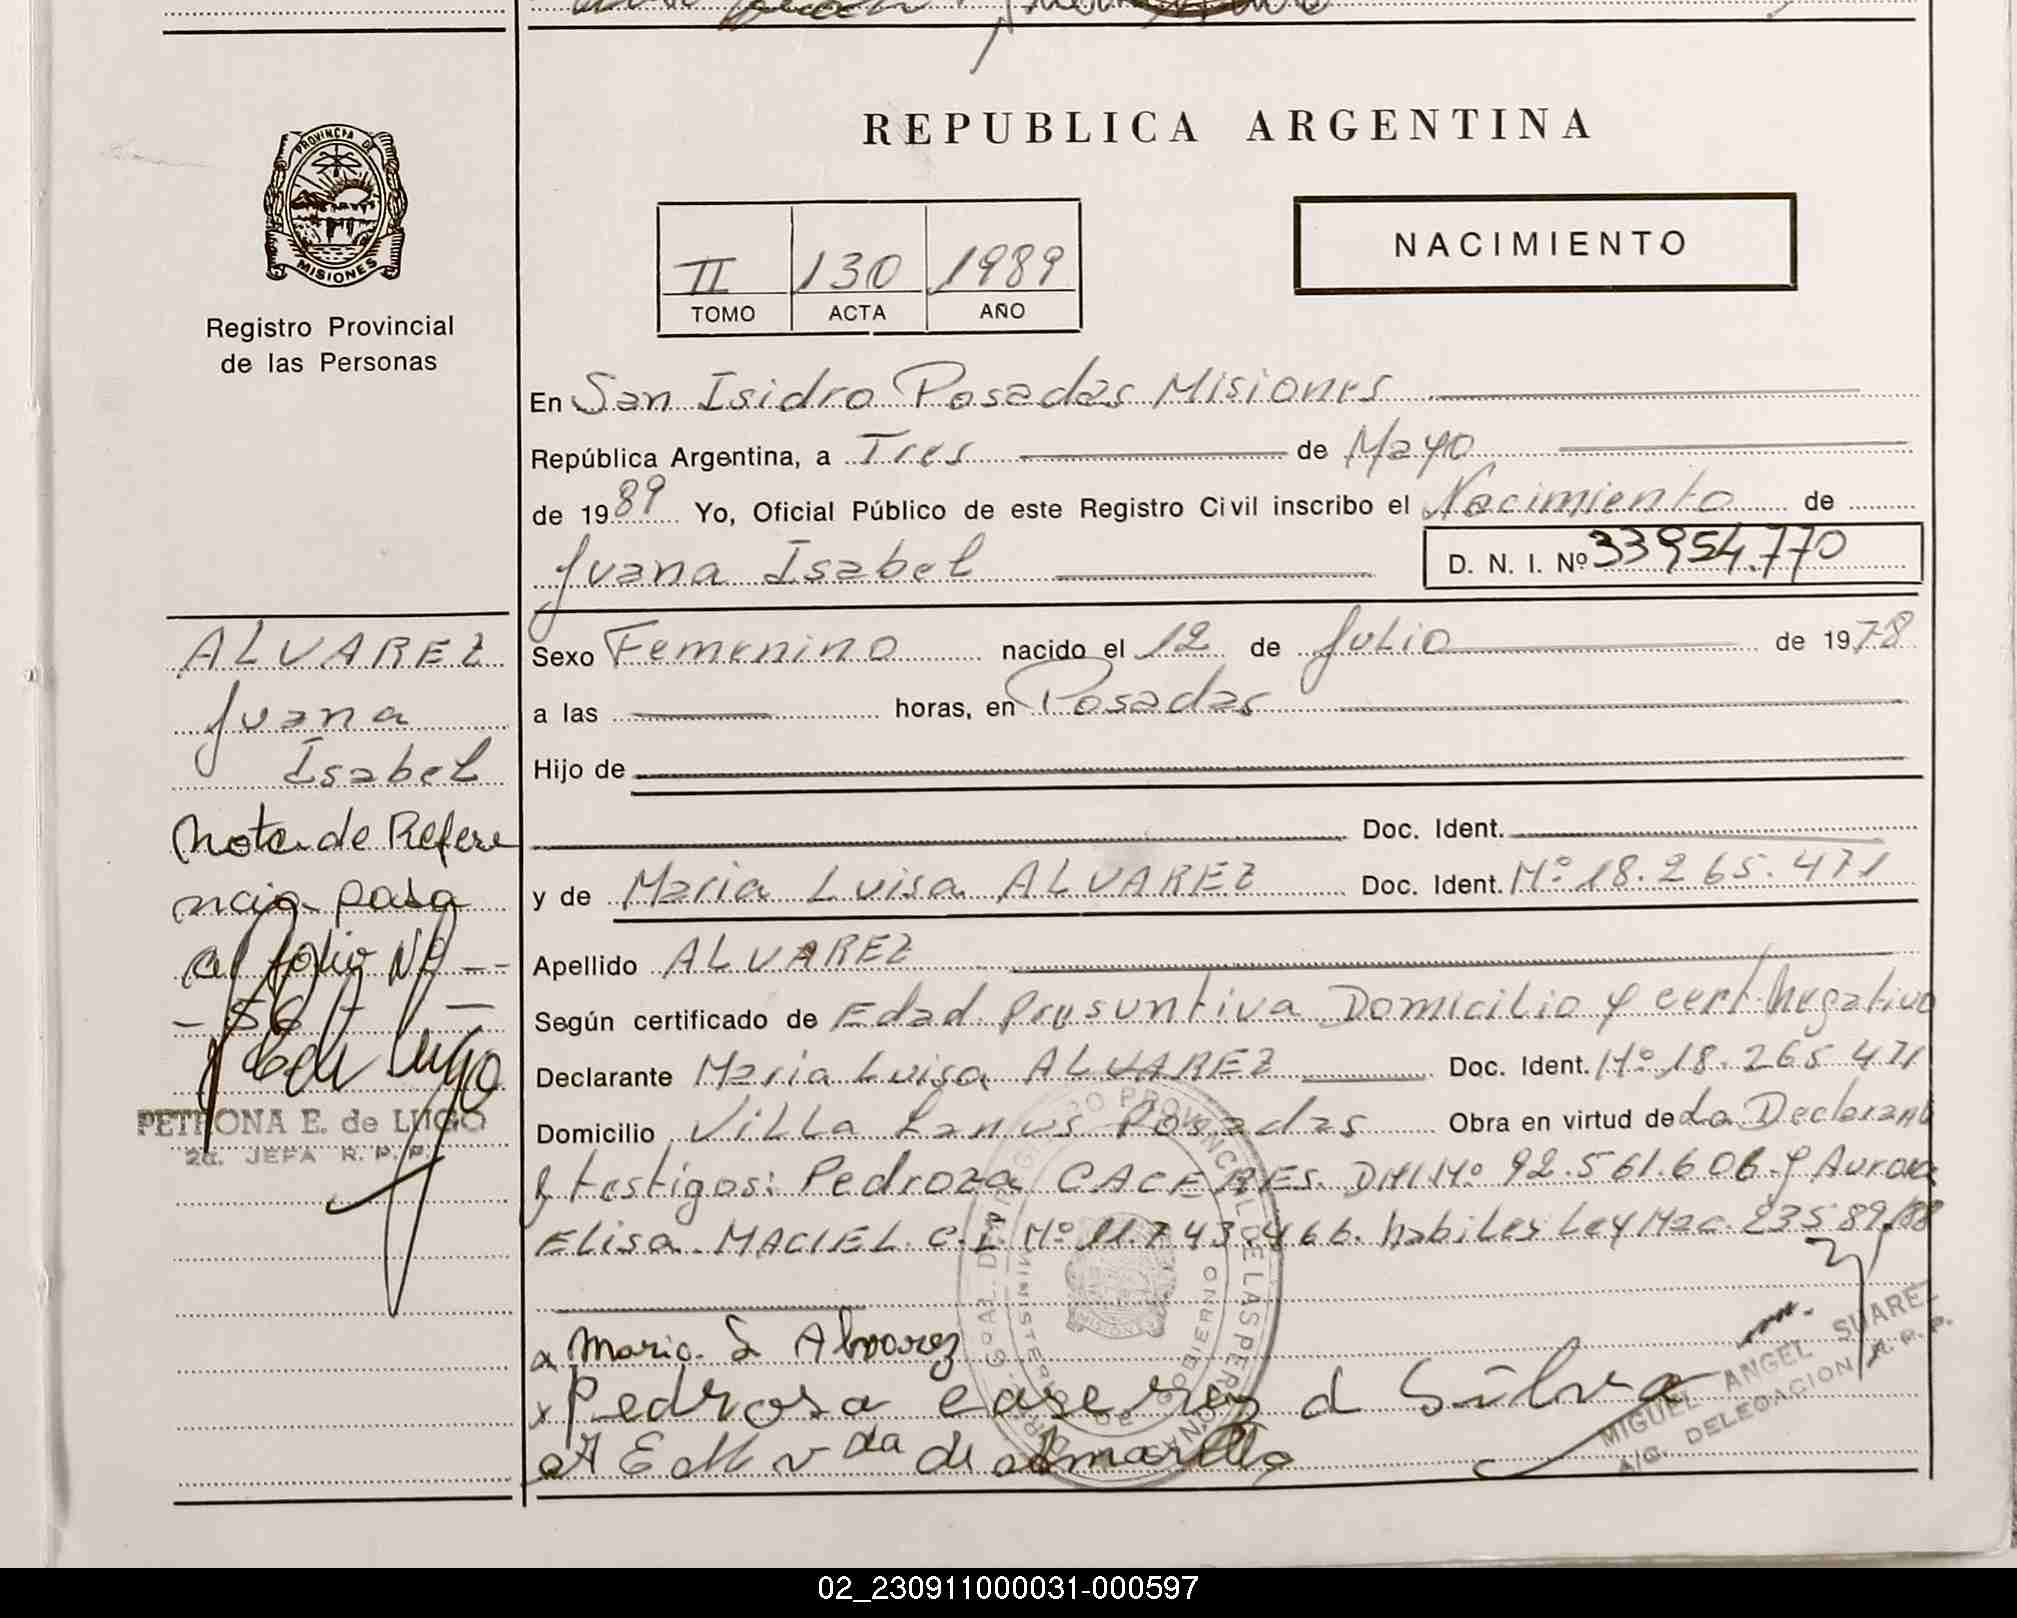 PROVINCIA DE
MISIONES
Registro Provincial
de las Personas
REPUBLICA ARGENTINA
II 130 1989
TOMO ACTA AÑO
NACIMIENTO
En San Isidro Posadas Misiones
República Argentina, a Tres de Mayo
de 1989 Yo, Oficial Público de este Registro Civil inscribo el Nacimiento de
Juana Isabel
D. N. I. Nº 33954.770
ALVAREZ
Juana
Isabel
Nota de Refere
ncia pasa
al folio Nº
PETRONA E. de LUGO
2da. JEFA R. P. P.
Sexo Femenino nacido el 12 de Julio de 1978
a las horas, en Posadas
Hijo de
Doc. Ident.
y de Maria Luisa ALVAREZ Doc. Ident. Nº 18.265.471
Apellido ALVAREZ
Según certificado de Edad Presuntiva Domicilio y cert. Negativo
Declarante Maria Luisa ALVAREZ Doc. Ident. Nº 18.265471
Domicilio Villa Lanus Posadas Obra en virtud de La Declarante
y testigos: Pedroza CACERES. DNI Nº 92.561.606 y Aurora
Elisa MACIEL C.I Nº 11.743.466. habiles Ley Nac. 23589/88
x Maria L Alvarez
x Pedrosa caseres d Silva
A E M vda de Amarilla
MIGUEL ANGEL SUAREZ
A/C. DELEGACION R. P. P.
02_230911000031-000597